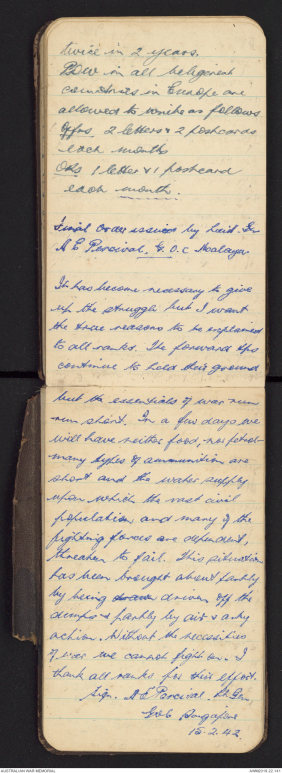 twice in 2 years.
POW in all beligerent
countries in Europe are
allowed to write as follows
Offrs, 2 letters & 2 postcards
each month
ORs 1 letter & 1 postcard
each month.
Final Order issued by Lieut. Gen
A E Percival, G.O.C Malaya
It has become necessary to give
up the struggle but I want
the true reasons to be explained
to all ranks. The forward tps
continue to hold their ground
but the essentials of war run
run short. In a few days we
will have neither food, nor petrol
many types of ammunition are
short and the water supply
upon which the vast civil
population and many of the
fighting forces are dependent,
threaten to fail. This situation
has been brought about partly
by being driven off the
dumps & partly by air & arty
action. Without the necessities
of war we cannot fight on. I
thank all ranks for this effort.
Sgn. A E Percival. Lt Gen
Singapore
15.2.42.
AUSTRALIAN WAR MEMORIAL